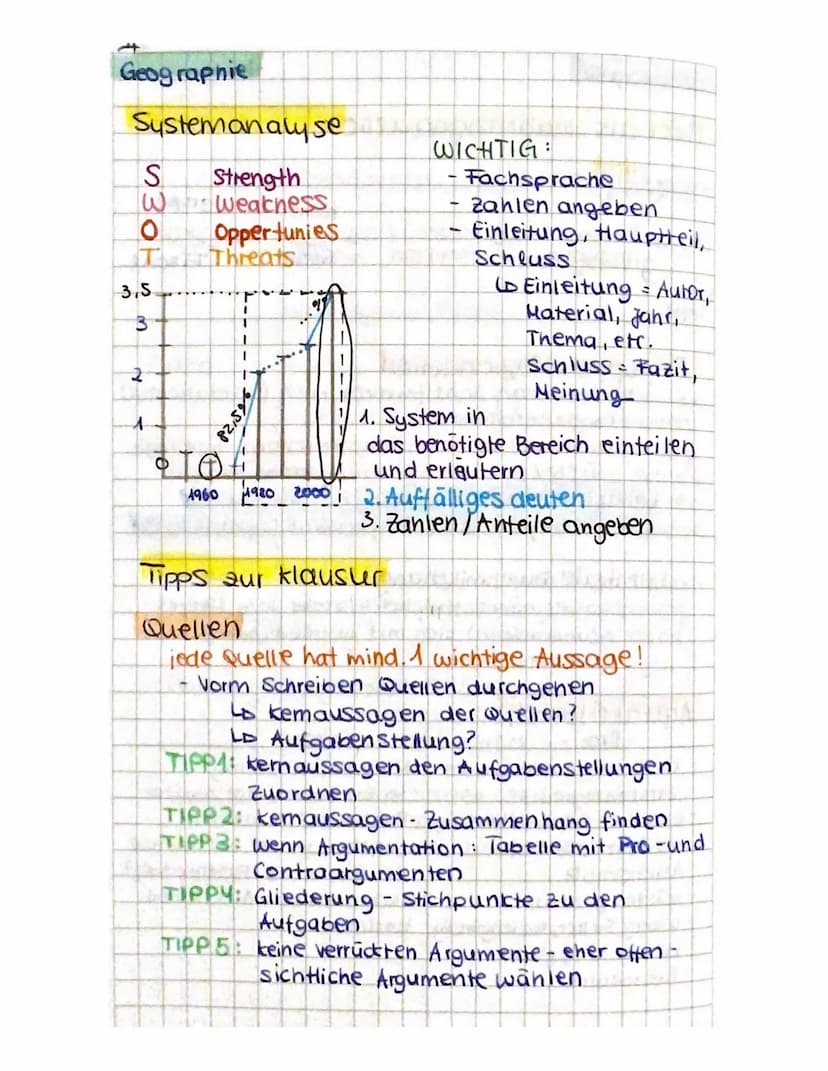 Geographie
Systemanalyse
S Strength
W Weakness
O Oppertunies
T Threats
WICHTIG:
- Fachsprache
- Zahlen angeben
- Einleitung, Hauptteil,
Schluss
↳ Einleitung = Autor,
Material, Jahr,
Thema, etc.
Schluss = Fazit,
Meinung
3,5
3
2
1
0
82,5%
1960 1980 2000
1. System in
das benötigte Bereich einteilen
und erläutern
2. Auffälliges deuten
3. Zahlen/Anteile angeben
Tipps zur Klausur
Quellen
jede Quelle hat mind. 1 wichtige Aussage!
- Vorm Schreiben Quellen durchgehen
↳ Kernaussagen der Quellen?
↳ Aufgabenstellung?
TIPP1: Kernaussagen den Aufgabenstellungen
zuordnen
TIPP2: Kernaussagen - Zusammenhang finden
TIPP3: wenn Argumentation: Tabelle mit Pro-und
Controargumenten
TIPP4: Gliederung - Stichpunkte zu den
Aufgaben
TIPP5: keine verrückten Argumente - eher offen-
sichtliche Argumente wählen